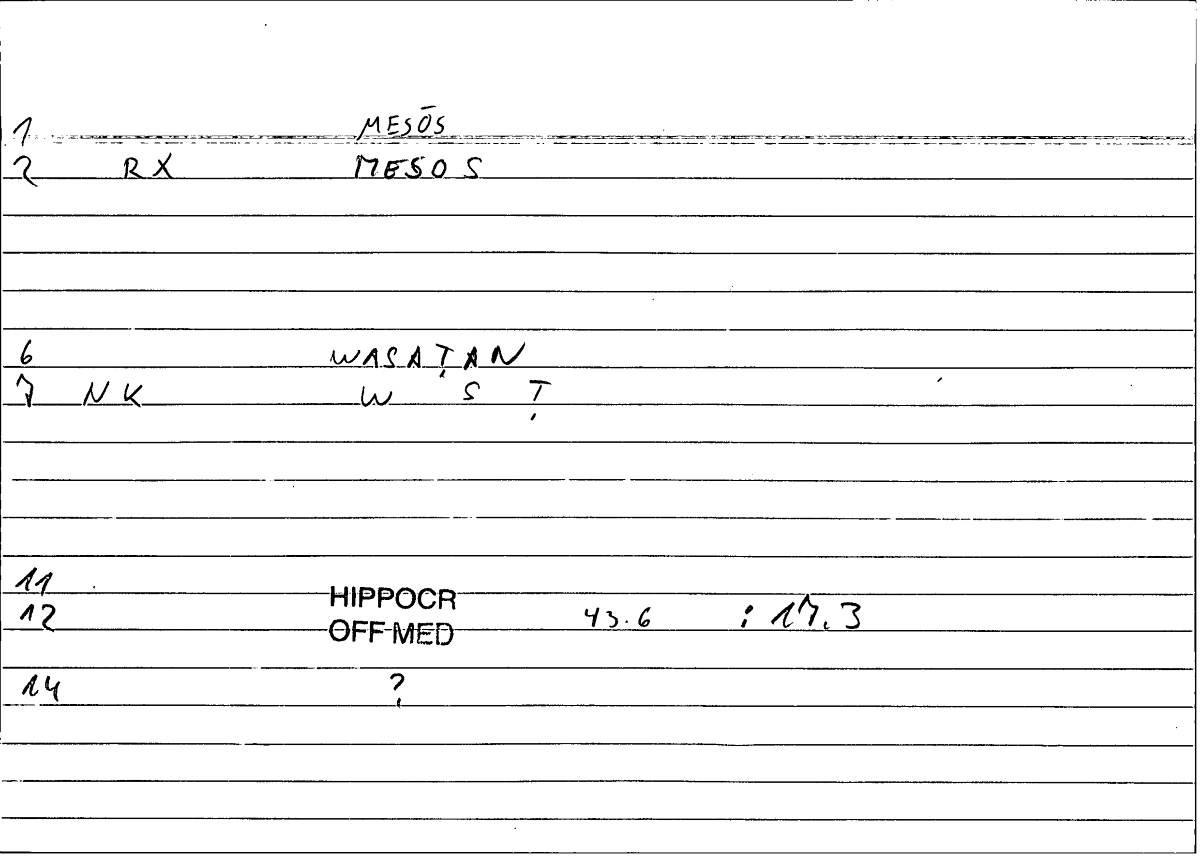 1 MESŌS
2 RX MESOS
6 WASAṬAN
7 NK W S Ṭ
11 HIPPOCR
12 OFF-MED 43.6 : 17.3
14 ?